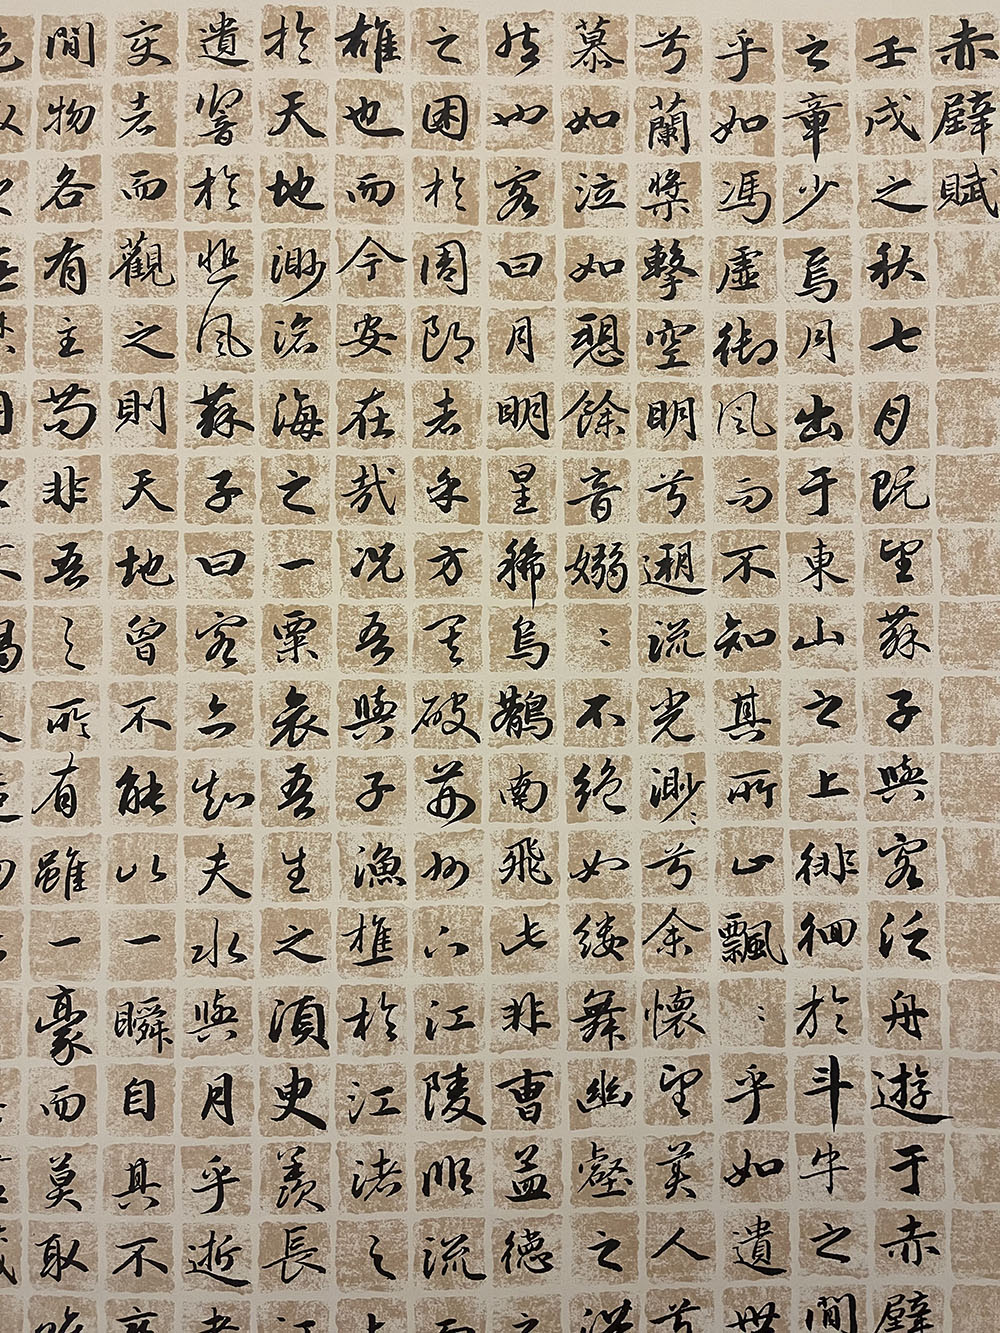 赤壁賦
壬戌之秋七月既望蘇子與客泛舟遊于赤壁
之章少焉月出于東山之上徘徊於斗牛之間
乎如馮虛御風而不知其所止飄〻乎如遺世
兮蘭槳擊空明兮遡流光渺〻兮余懷望美人兮
慕如泣如愬餘音嫋〻不絕如縷舞幽壑之潛
然也客曰月明星稀烏鵲南飛此非曹孟德之
之困於周郎者乎方其破荊州下江陵順流而
雄也而今安在哉況吾與子漁樵於江渚之上
於天地渺滄海之一粟哀吾生之須臾羨長江
遺響於悲風蘇子曰客亦知夫水與月乎逝者
變者而觀之則天地曾不能以一瞬自其不變
間物各有主苟非吾之所有雖一豪而莫取